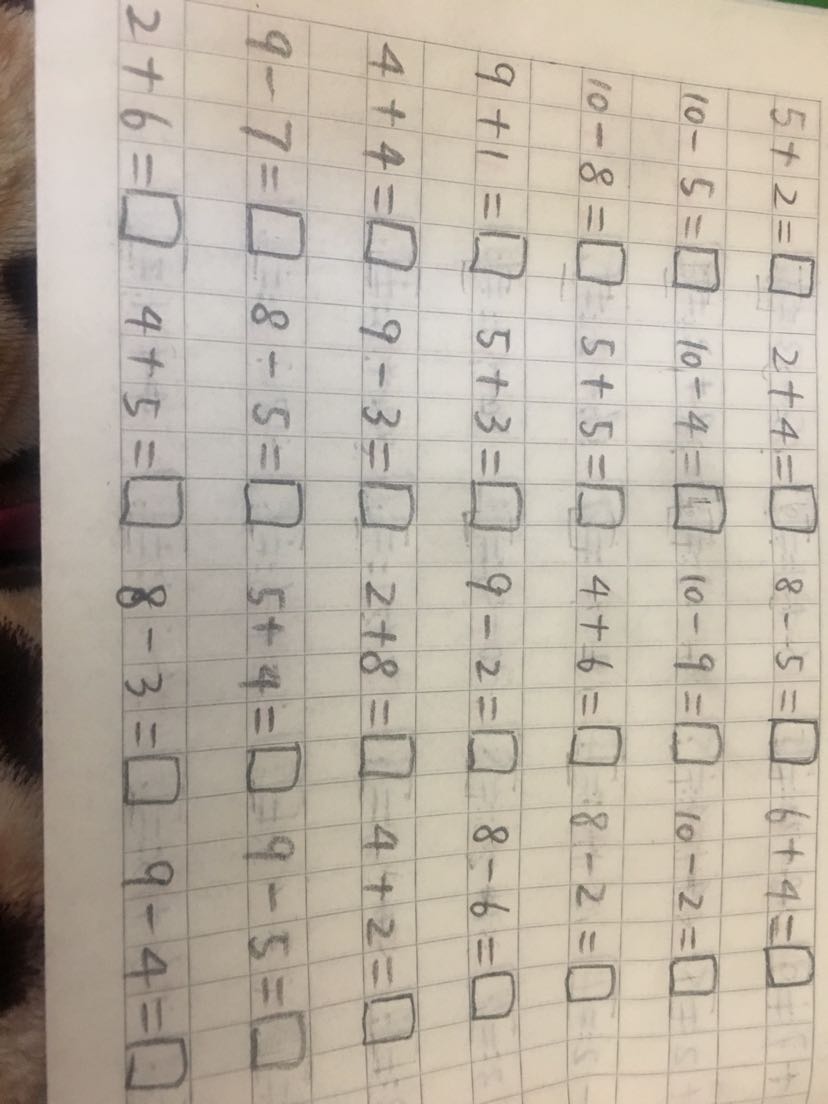 5+2=□ 2+4=□ 8-5=□ 6+4=□
10-5=□ 10-4=□ 10-9=□ 10-2=□
10-8=□ 5+5=□ 4+6=□ 8-2=□
9+1=□ 5+3=□ 9-2=□ 8-6=□
4+4=□ 9-3=□ 2+8=□ 4+2=□
9-7=□ 8-5=□ 5+4=□ 9-5=□
2+6=□ 4+5=□ 8-3=□ 9-4=□